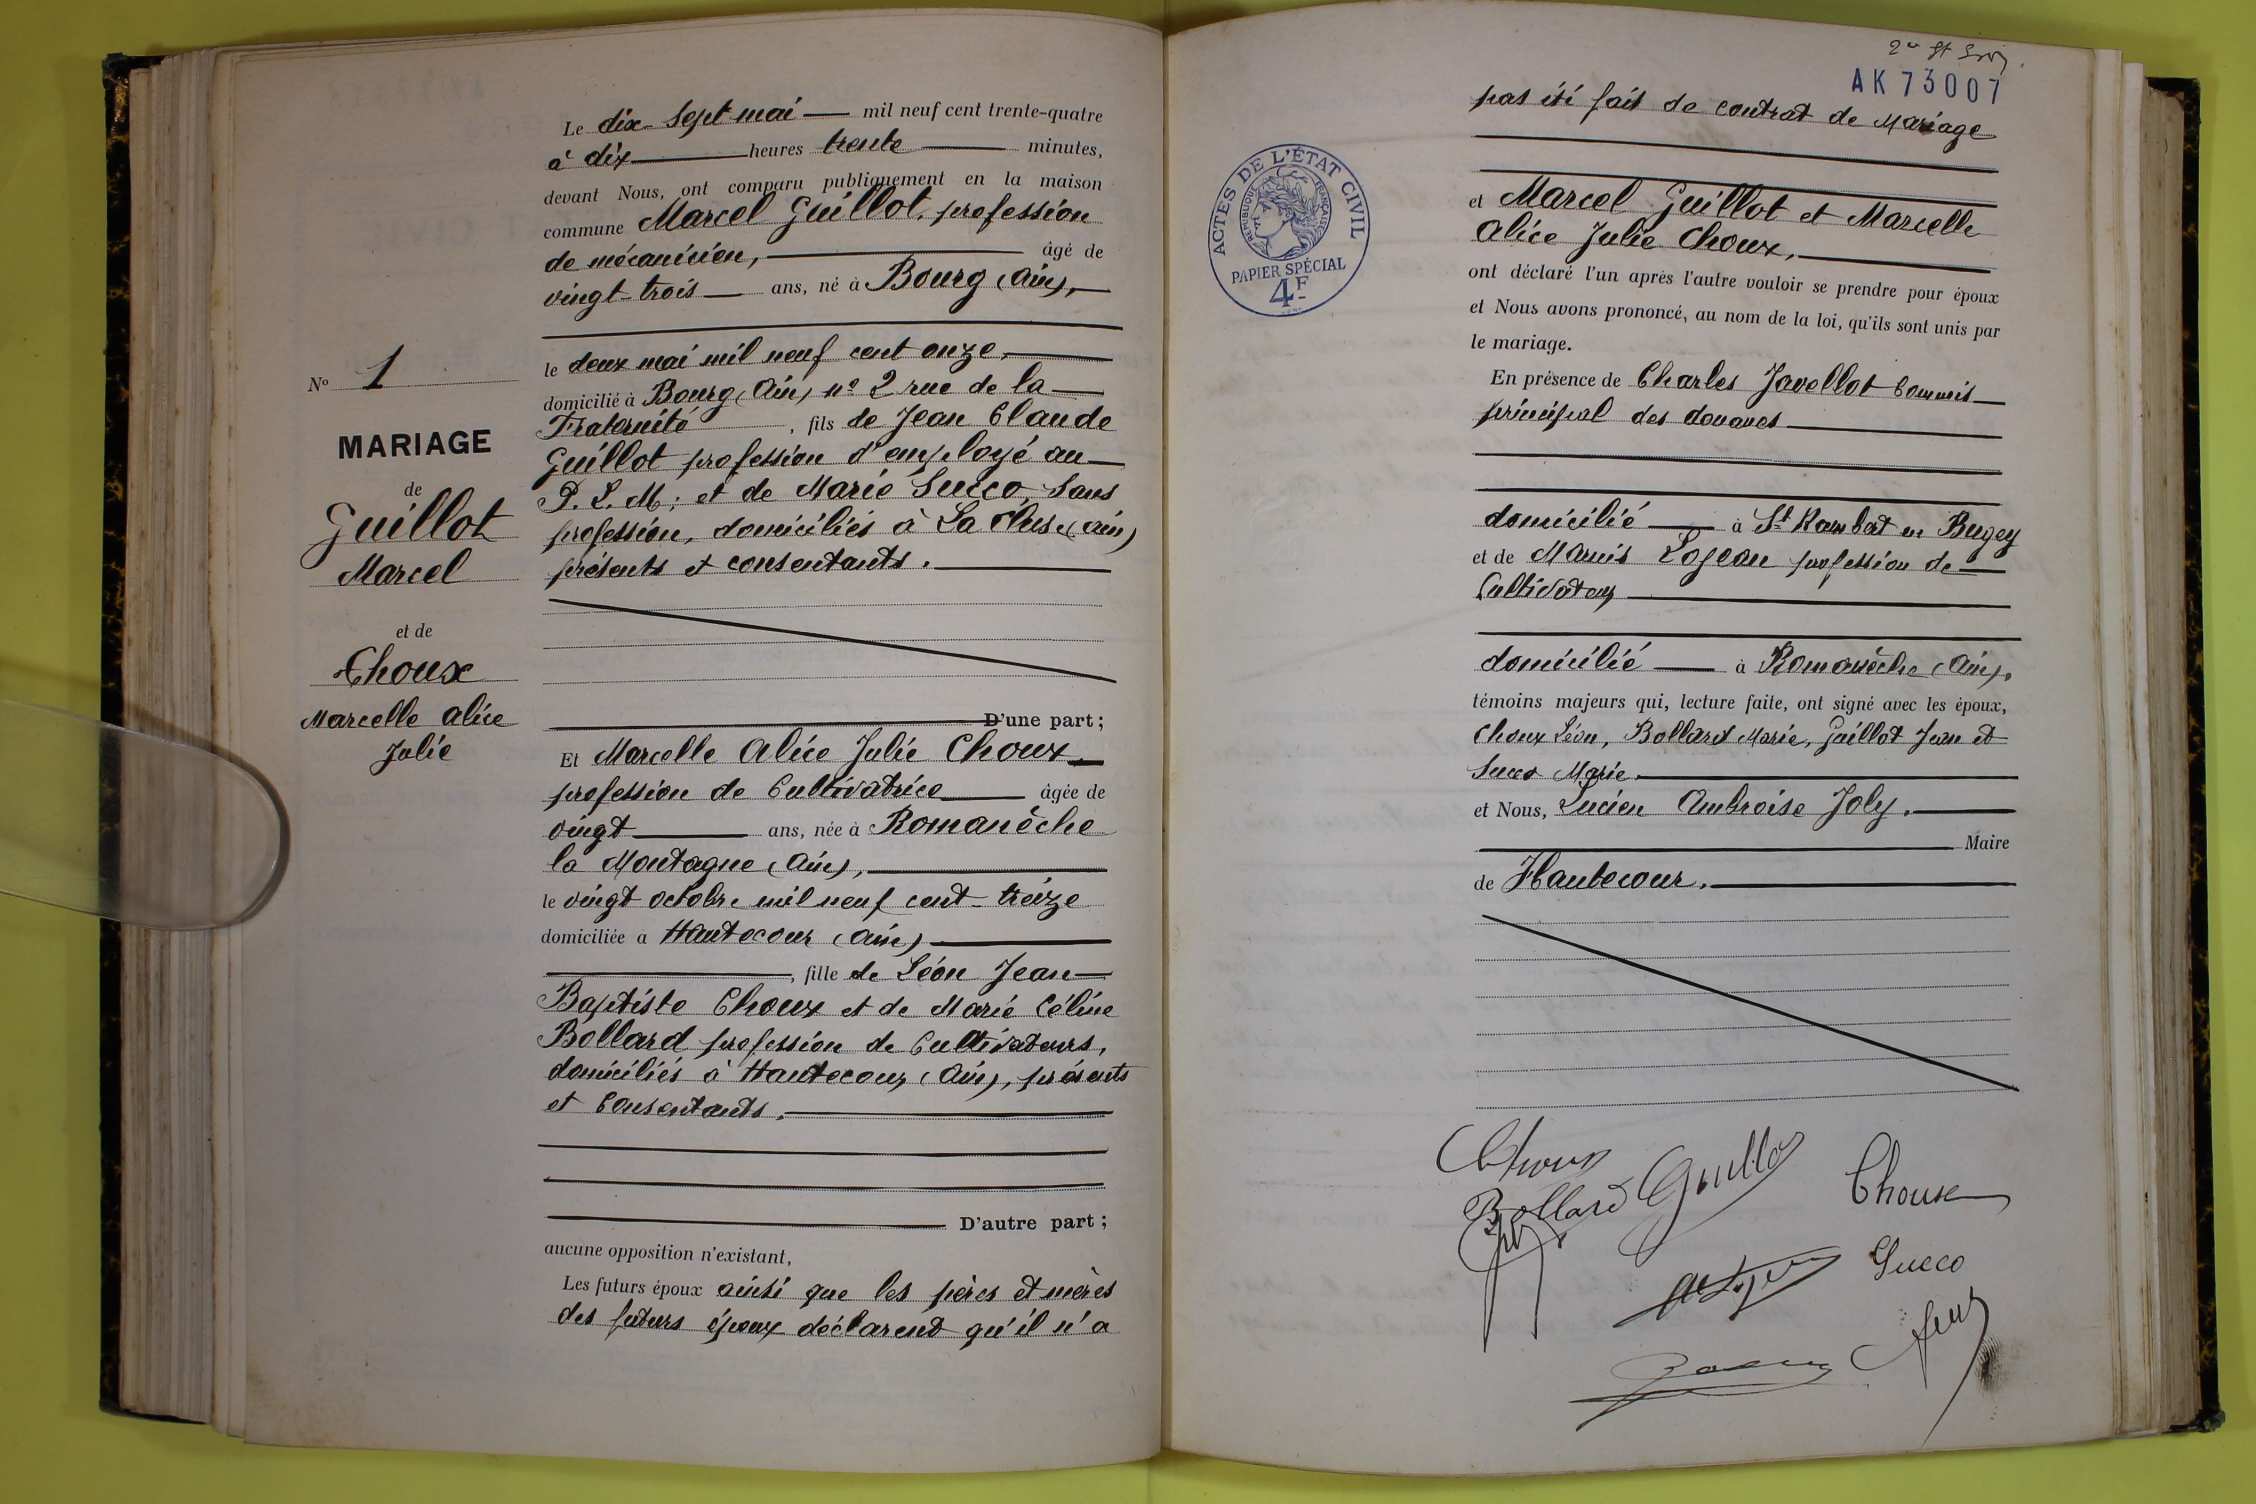 Le dix-sept mai mil neuf cent trente-quatre
à dix heures trente minutes,
devant Nous, ont comparu publiquement en la maison
commune Marcel Guillot, profession
de mécanicien, âgé de
vingt-trois ans, né à Bourg (Ain),
le deux mai mil neuf cent onze,
domicilié à Bourg (Ain) nº 2 rue de la
Fraternité, fils de Jean Claude
Guillot profession d'employé au
P. L. M; et de Marie Succo, sans
profession, domiciliés à La Cluse (Ain)
présents et consentants.
D'une part;
Nº 1
MARIAGE
de
Guillot
Marcel
et de
Choux
Marcelle Alice
Julie
Et Marcelle Alice Julie Choux,
profession de Cultivatrice âgée de
vingt ans, née à Romanèche
la Montagne (Ain),
le vingt octobre mil neuf cent-treize
domiciliée à Hautecour (Ain)
, fille de Léon Jean
Baptiste Choux et de Marie Céline
Bollard profession de Cultivateurs,
domiciliés à Hautecour (Ain), présents
et consentants.
D'autre part;
aucune opposition n'existant,
Les futurs époux ainsi que les pères et mères
des futurs époux déclarent qu'il n'a
AK 73007
pas été fait de contrat de Mariage
ACTES DE L'ÉTAT CIVIL
RÉPUBLIQUE FRANÇAISE
PAPIER SPÉCIAL
4F
et Marcel Guillot et Marcelle
Alice Julie Choux,
ont déclaré l'un après l'autre vouloir se prendre pour époux
et Nous avons prononcé, au nom de la loi, qu'ils sont unis par
le mariage.
En présence de Charles Javellot Commis
principal des douanes
domicilié à St Rambert en Bugey
et de Marius Lojean profession de
Cultivateur
domicilié à Romanèche (Ain).
témoins majeurs qui, lecture faite, ont signé avec les époux,
Choux Léon, Bollard Marie, Guillot Jean et
Succo Marie.
et Nous, Lucien Ambroise Joly.
Maire
de Hautecour.
Choux
Guillot
Bollard
Choux
Succo